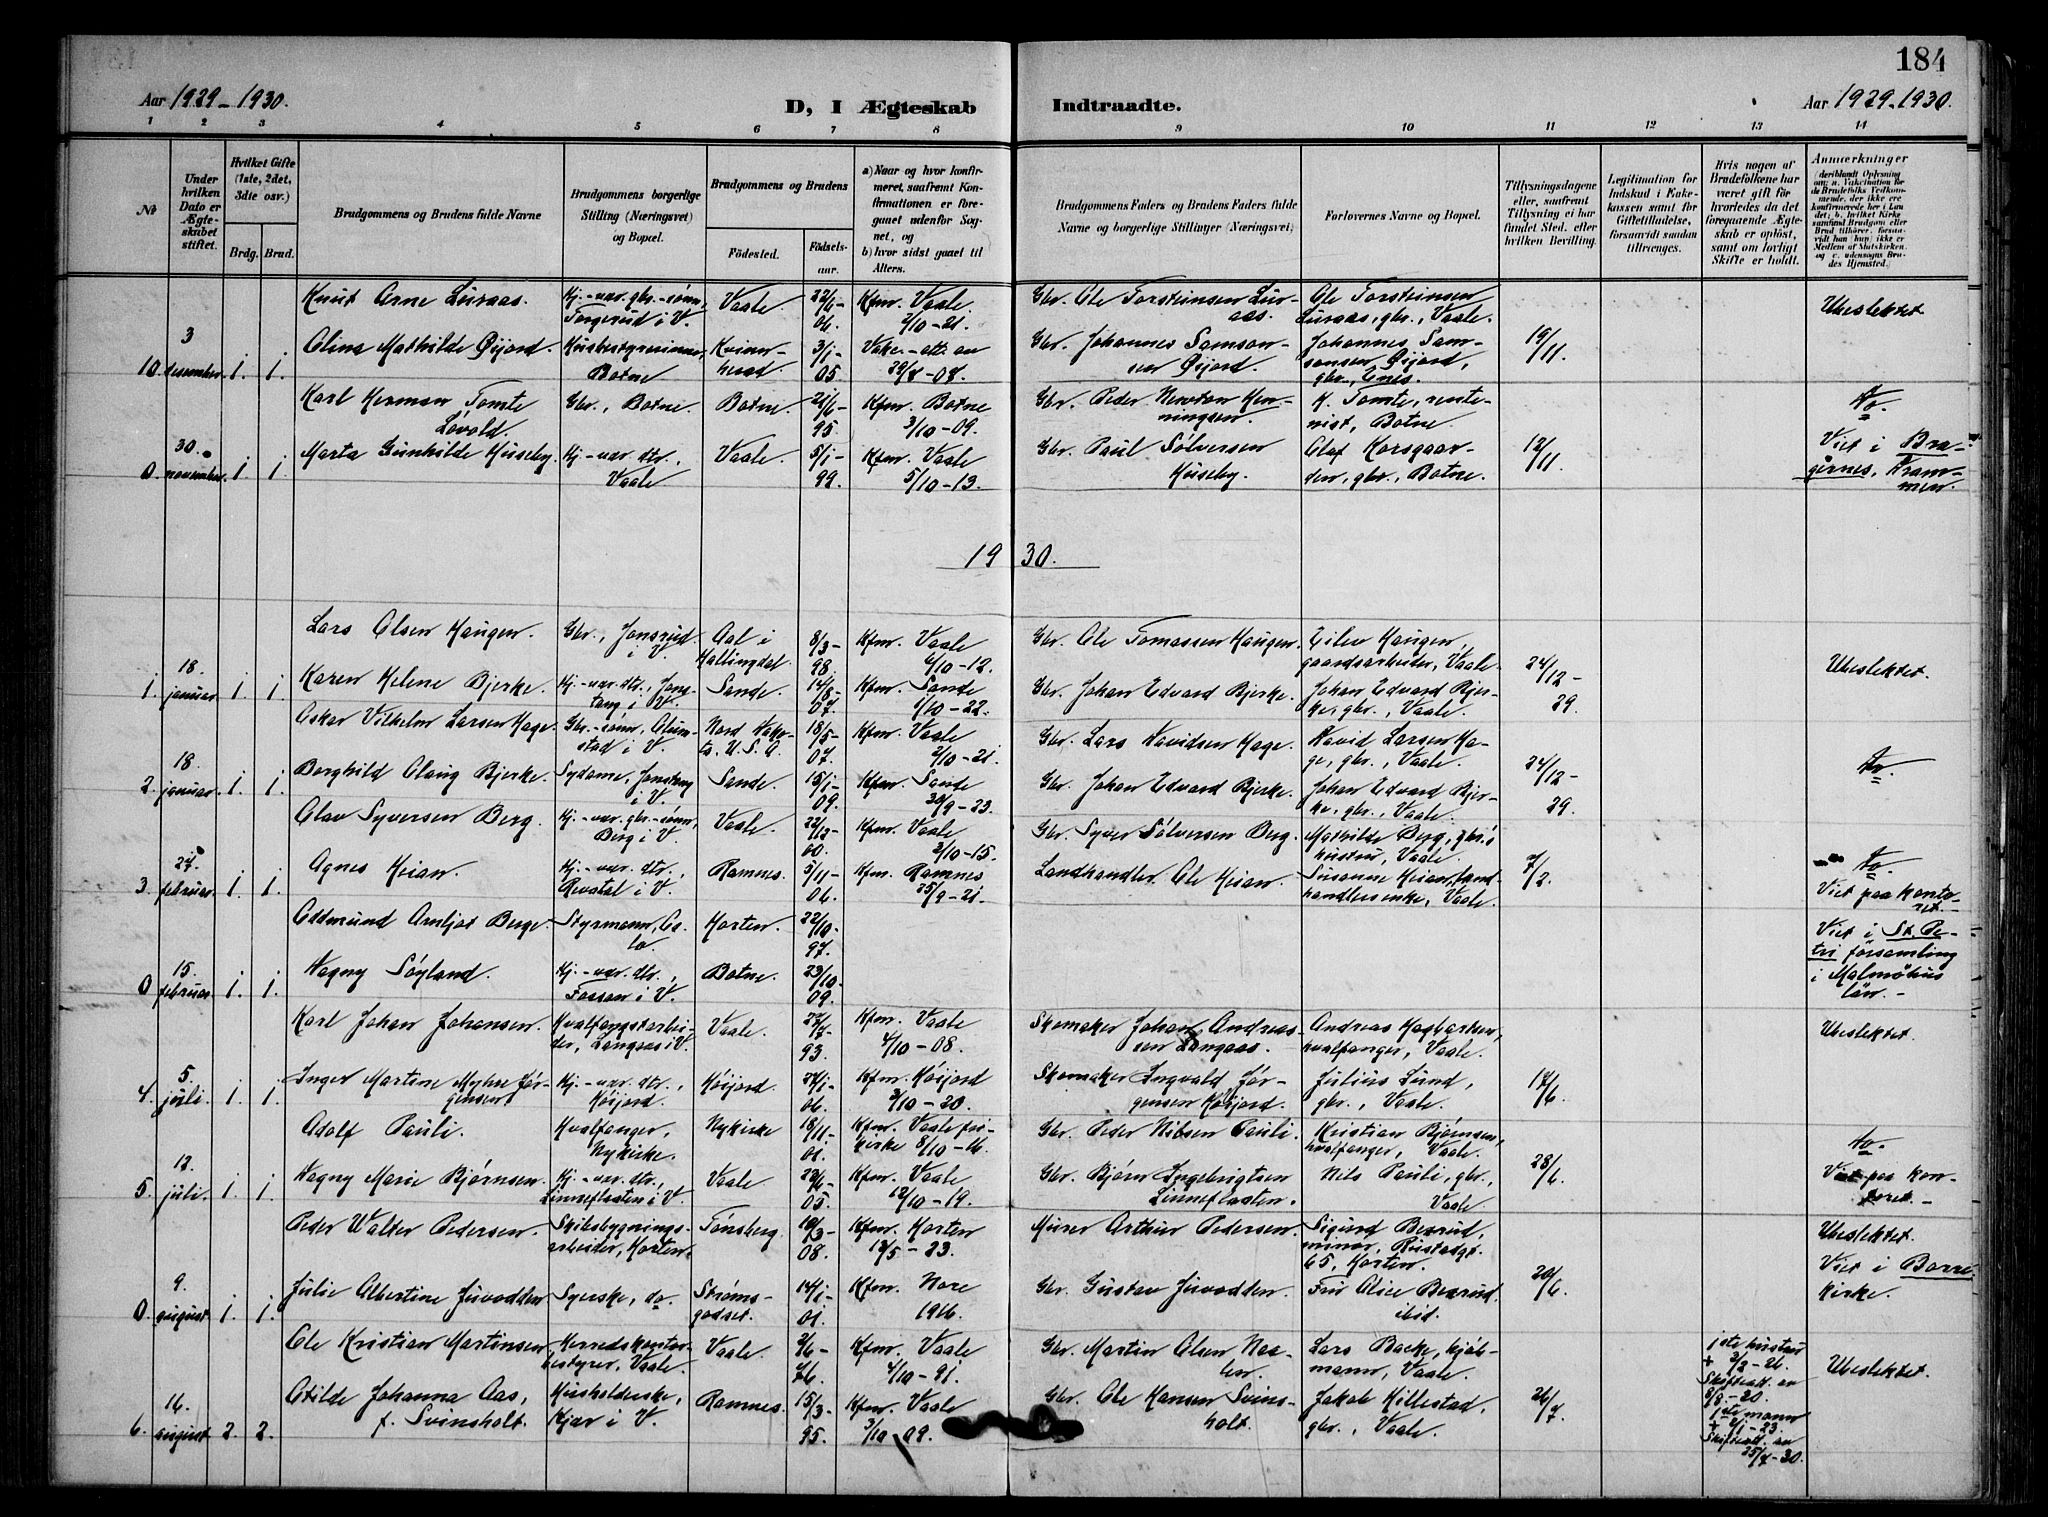 184
Aar 1929-1930.
D, I Ægteskab
Indtraadte.
Aar 1929-1930.
1 2 3 4 5 6 7 8 9 10 11 12 13 14
№
Under hvilken Dato er Ægteskabet stiftet.
Hvilket Gifte (1ste, 2det, 3die osv.)
Brdg. Brud.
Brudgommens og Brudens fulde Navne
Brudgommens borgerlige Stilling (Næringsvei) og Bopæl.
Brudgommens og Brudens
Fødested.
Fødselsaar.
a) Naar og hvor konfirmeret, saafremt Konfirmationen er foregaaet udenfor Sognet, og
b) hvor sidst gaaet til Alters.
Brudgommens Faders og Brudens Faders fulde Navne og borgerlige Stillinger (Næringsvei)
Forlovernes Navne og Bopæl.
Tillysningsdagene eller, saafremt Tillysning ei har fundet Sted, efter hvilken Bevilling.
Legitimation for Indskud i Enkekassen samt for Giftetilladelse, forsaavidt saadan tiltrænges.
Hvis nogen af Brudefolkene har været gift før hvorledes da det foregaaende Ægteskab er opløst, samt om lovligt Skifte er holdt.
Anmærkninger
Knut Arne Luraas. Kj.-var. gbr.-sønn, Torgerud i V. Vaale 22/6-06. Kfm. Vaale 2/10-21. Gbr. Ole Torsteinsen Luraas. Ole Torsteinsen Luraas, gbr., Vaale. Ubeslektet
10. 3 desember. 1. 1. Olina Mathilde Øijord. Husbestyrerinne, Botne Kvinnherad 3/1-05. Gbr. Johannes Samsonsen Øijord. Johannes Samsonsen Øijord, gbr., Enes. 19/11.
Karl Herman Tomte Løvold. Gbr., Botne. Botne. 21/6-95. Kfm. Botne 3/10-09. Gbr. Peder Newton Henningsen. K. Tomte, rentenist, Botne. Do.
0. 30. november. 1. 1. Marta Gunhilde Huseby. Kj.-var. dtr., Vaale Vaale. 5/1-99. Kfm. Vaale 5/10-13. Gbr. Paul Sølversen Huseby. Olaf Korsgaarden, gbr., Botne. 12/11. Viet i Bragernes, Drammen.
1930.
Lars Olsen Haugen. Gbr., Jonsrud i V. Aal i Hallingdal. 8/3-98 Kfm. Vaale 6/10-12. Gbr. Ole Tomassen Haugen. Eilev Haugen, gaardsarbeider, Vaale.
1. 18. januar 1. 1. Karen Helene Bjerke. Kj.-var. dtr., i V. Sande. 14/8-07. Kfm. Sande 1/10-22. Gbr. Johan Edvard Bjerke. Johan Edvard Bjerke, gbr., Vaale. 24/12-29. Ubeslektet.
Oskar Vilhelm Larsen Hage. Gbr.-sønn, i V. Nord Dakota. U.S.A. 18/5-07. Kfm. Vaale 2/10-21. Gbr. Lars Davidsen Hage. David Larsen Hage, gbr., Vaale.
2. 18. januar. 1. 1. Borghild Olaug Bjerke. Sydame, i V. Sande. 15/1-09. Kfm. Sande 30/9-23. Gbr. Johan Edvard Bjerke. Johan Edvard Bjerke, gbr., Vaale. 24/12-29. Do.
Olav Syversen Berg. Kj.-var. gbr.-sønn, Berg i V. Vaale. 22/12-00. Kfm. Vaale 3/10-15. Gbr. Syver Sølversen Berg. Mathilde Berg, gbr.'s hustru, Vaale.
3. 27. februar. 1. 1. Agnes Heian. Kj.-var. dtr., Revatal i V. Ramnes. 5/11-06. Kfm. Ramnes 25/9-21. Landhandler Ole Heian. Susanne Heian, landhandlerenke, Vaale. 7/2. Do. Viet paa kontoret.
Oddmund Arnljot Berge. Styrmann, Oslo. Horten. 22/10-97.
0. 15. februar. 1. 1. Dagny Søyland. Kj.-var. dtr., Fossan i V. Botne. 23/10-09. Viet i St. Petri församling i Malmöhus län.-
Karl Johan Johansen. Hvalfangstarbeider, Langaas i V. Vaale. 27/7-93. Kfm. Vaale 4/10-08. Skomaker Johan Andreassen Langaas. Andreas Hagbartsen, hvalfanger, Vaale. Ubeslektet.
4. 5. juli. 1. 1. Inger Martine Myhre Jørgensen. Kj.-var. dtr., Høijord. Høijord. 27/1-06. Kfm. Høijord 3/10-20. Skomaker Ingvald Jørgensen Høijord. Julius Lund, gbr., Vaale. 17/6.
Adolf Pauli. Hvalfanger, Nykirke. Nykirke 18/11-01. Kfm. Vaale frikirke 8/10-16. Gbr. Peder Nilsen Pauli. Kristian Bjørnsen, hvalfanger, Vaale. Do.
5. 12. juli. 1. 1. Dagny Marie Bjørnsen. Kj.-var. dtr., Linneflaaten i V. Vaale 23/6-05. Kfm. Vaale 12/10-19. Gbr. Bjørn Ingebrigtsen Linneflaaten. Nils Pauli, gbr., Vaale. 28/6. Viet paa kontoret.
Peder Walter Pedersen. Skibsbygningsarbeider, Horten. Tønsberg. 10/3-08. Kfm. Horten 13/5-23. Murer Arthur Pedersen. Sigurd Bexrud, minør, Rustadgt. 65, Horten. Ubeslektet.
0. 9. august 1. 1. Julie Albertine Juvodden Syerske, do. Strømsgodset. 14/1-01. Kfm. Nore 1916. Gbr. Gustav Juvodden. Fru Alice Bexrud. ibid. 20/6. Viet i Borre kirke.
Ole Kristian Martinsen, Herredskontorbestyrer, Vaale. Vaale. 2/6-76. Kfm. Vaale 4/10-91. Gbr. Martin Olsen Lars Backe, kjøbmann, Vaale. 1ste hustru + 3/2-26. Skifteatt. av 8/8-30. Ubeslektet.
6. 16. august 2. 2. Otilde Johanna Aas, f. Svinsholt. Husholderske, Kjær i V. Ramnes. 15/3-95. Kfm. Vaale 3/10-09. Gbr. Ole Hansen Svinsholt. Jakob Hillestad, gbr., Vaale. 26/7. 1ste mann + 2/1-23. Skifteatt. av 25/7-30.